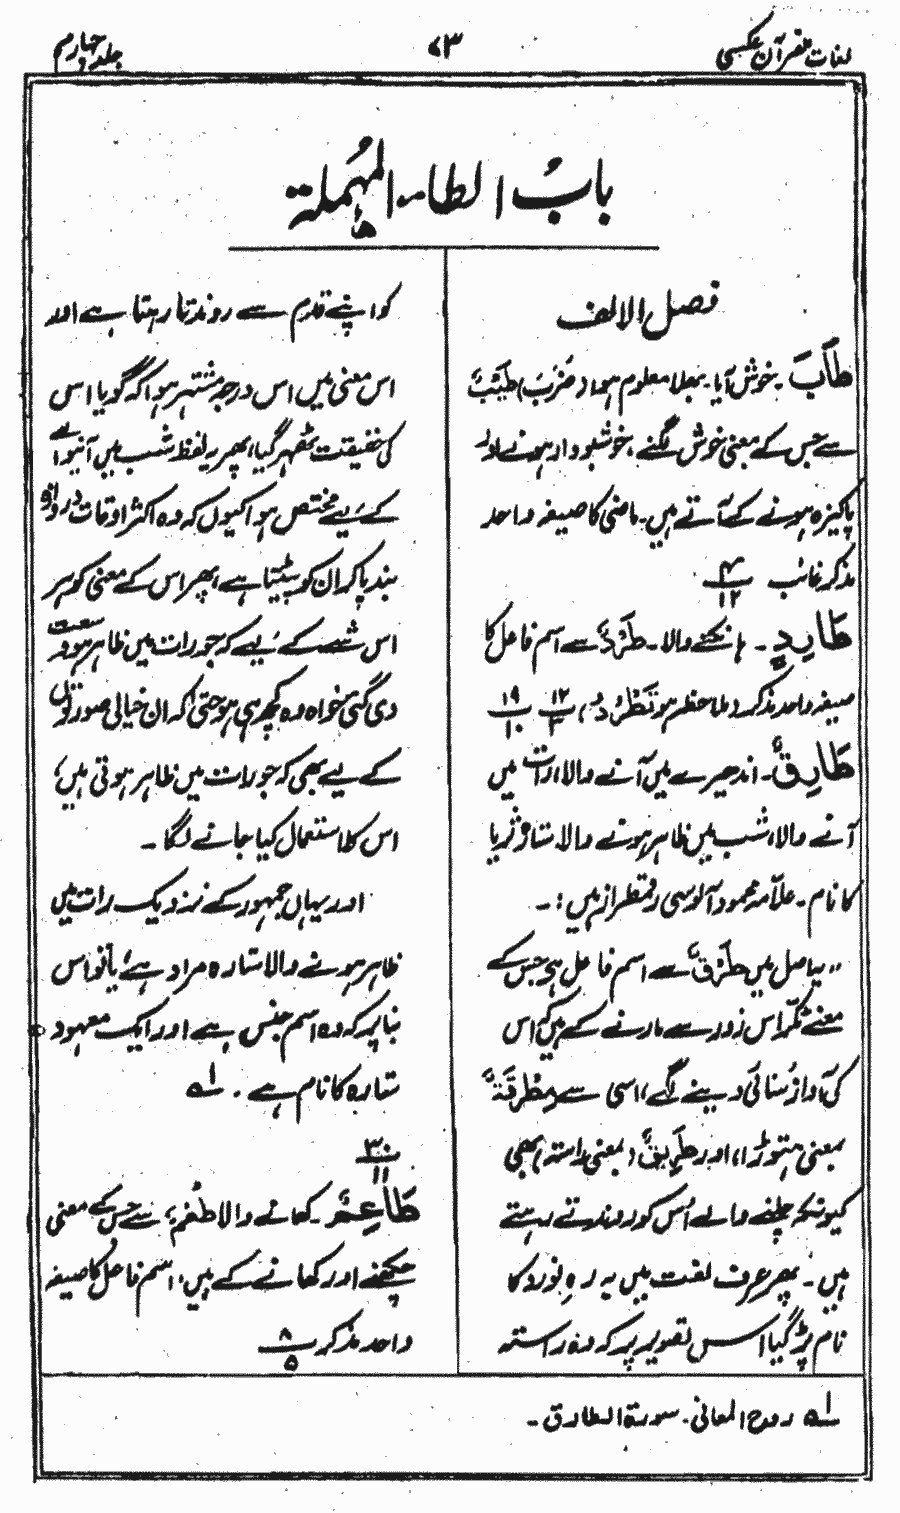 لغات القرآن عکسی
۷۳
جلد چہارم
بابُ الطاء المُہملة
فصل الالف
طَابَ۔ خوش آیا۔ بھلا معلوم ہوا (ضَرَبَ) طِیْبٌ
سے جس کے معنی خوش لگنے، خوشبودار ہونے اور
پاکیزہ ہونے کے آتے ہیں۔ ماضی کا صیغہ واحد
مذکر غائب ۴/۱۲
طَارِدٍ۔ ہانکنے والا۔ طَرْدٌ سے اسم فاعل کا
صیغہ واحد مذکر (ملاحظہ ہو تَطْرُدْ) ۱۲/۳ ۱۹/۱۰
طَارِقٌ۔ اندھیرے میں آنے والا، رات میں
آنے والا، شب میں ظاہر ہونے والا ستارہ ثریا
کا نام۔ علّامہ محمود آلوسی رقمطراز ہیں :۔
،، یہ اصل میں طَرْقٌ سے اسم فاعل ہے جس کے
معنے مگر اس زور سے مارنے کے ہیں کہ اس
کی آواز سُنائی دینے لگے، اسی سے مِطْرَقَةٌ
بمعنی ہتوڑا، اور طَرِیْقٌ (بمعنی راستہ) بھی
کیونکہ چلنے والے اُس کو روندتے رہتے
ہیں۔ پھر عرف لغت میں یہ رہِ نورد کا
نام پڑ گیا اس تصویر پر کہ وہ راستہ
کو اپنے قدم سے روندتا رہتا ہے اور
اس معنی میں اس درجہ مشتہر ہوا کہ گویا اس
کی حقیقت ٹھہر گیا، پھر یہ لفظ شب میں آنیوالے
کے لیے مختص ہوا کیوں کہ وہ اکثر اوقات دروازہ
بند پا کر ان کو پیٹتا ہے، پھر اس کے معنی کو
اس شے کے لیے کہ جو رات میں ظاہر ہو وسعت
دی گئی خواہ وہ کچھ ہی ہو حتٰی کہ ان خیالی صورتوں
کے لیے بھی کہ جو رات میں ظاہر ہوتی ہیں،
اس کا استعمال کیا جانے لگا۔
اور یہاں جمہور کے نزدیک رات میں
ظاہر ہونے والا ستارہ مراد ہے، یا تو اس
بنا پر کہ وہ اسم جنس ہے اور ایک معہود
ستارہ کا نام ہے۔ لہ
۳۰/۱۱
طَاعِمٌ۔ کھانے والا طُعْمٌ، سے جس کے معنی
چکھنے اور کھانے کے ہیں، اسم فاعل کا صیغہ
واحد مذکر ۸/۵
لہ روح المعانی۔ سورة الطارق۔